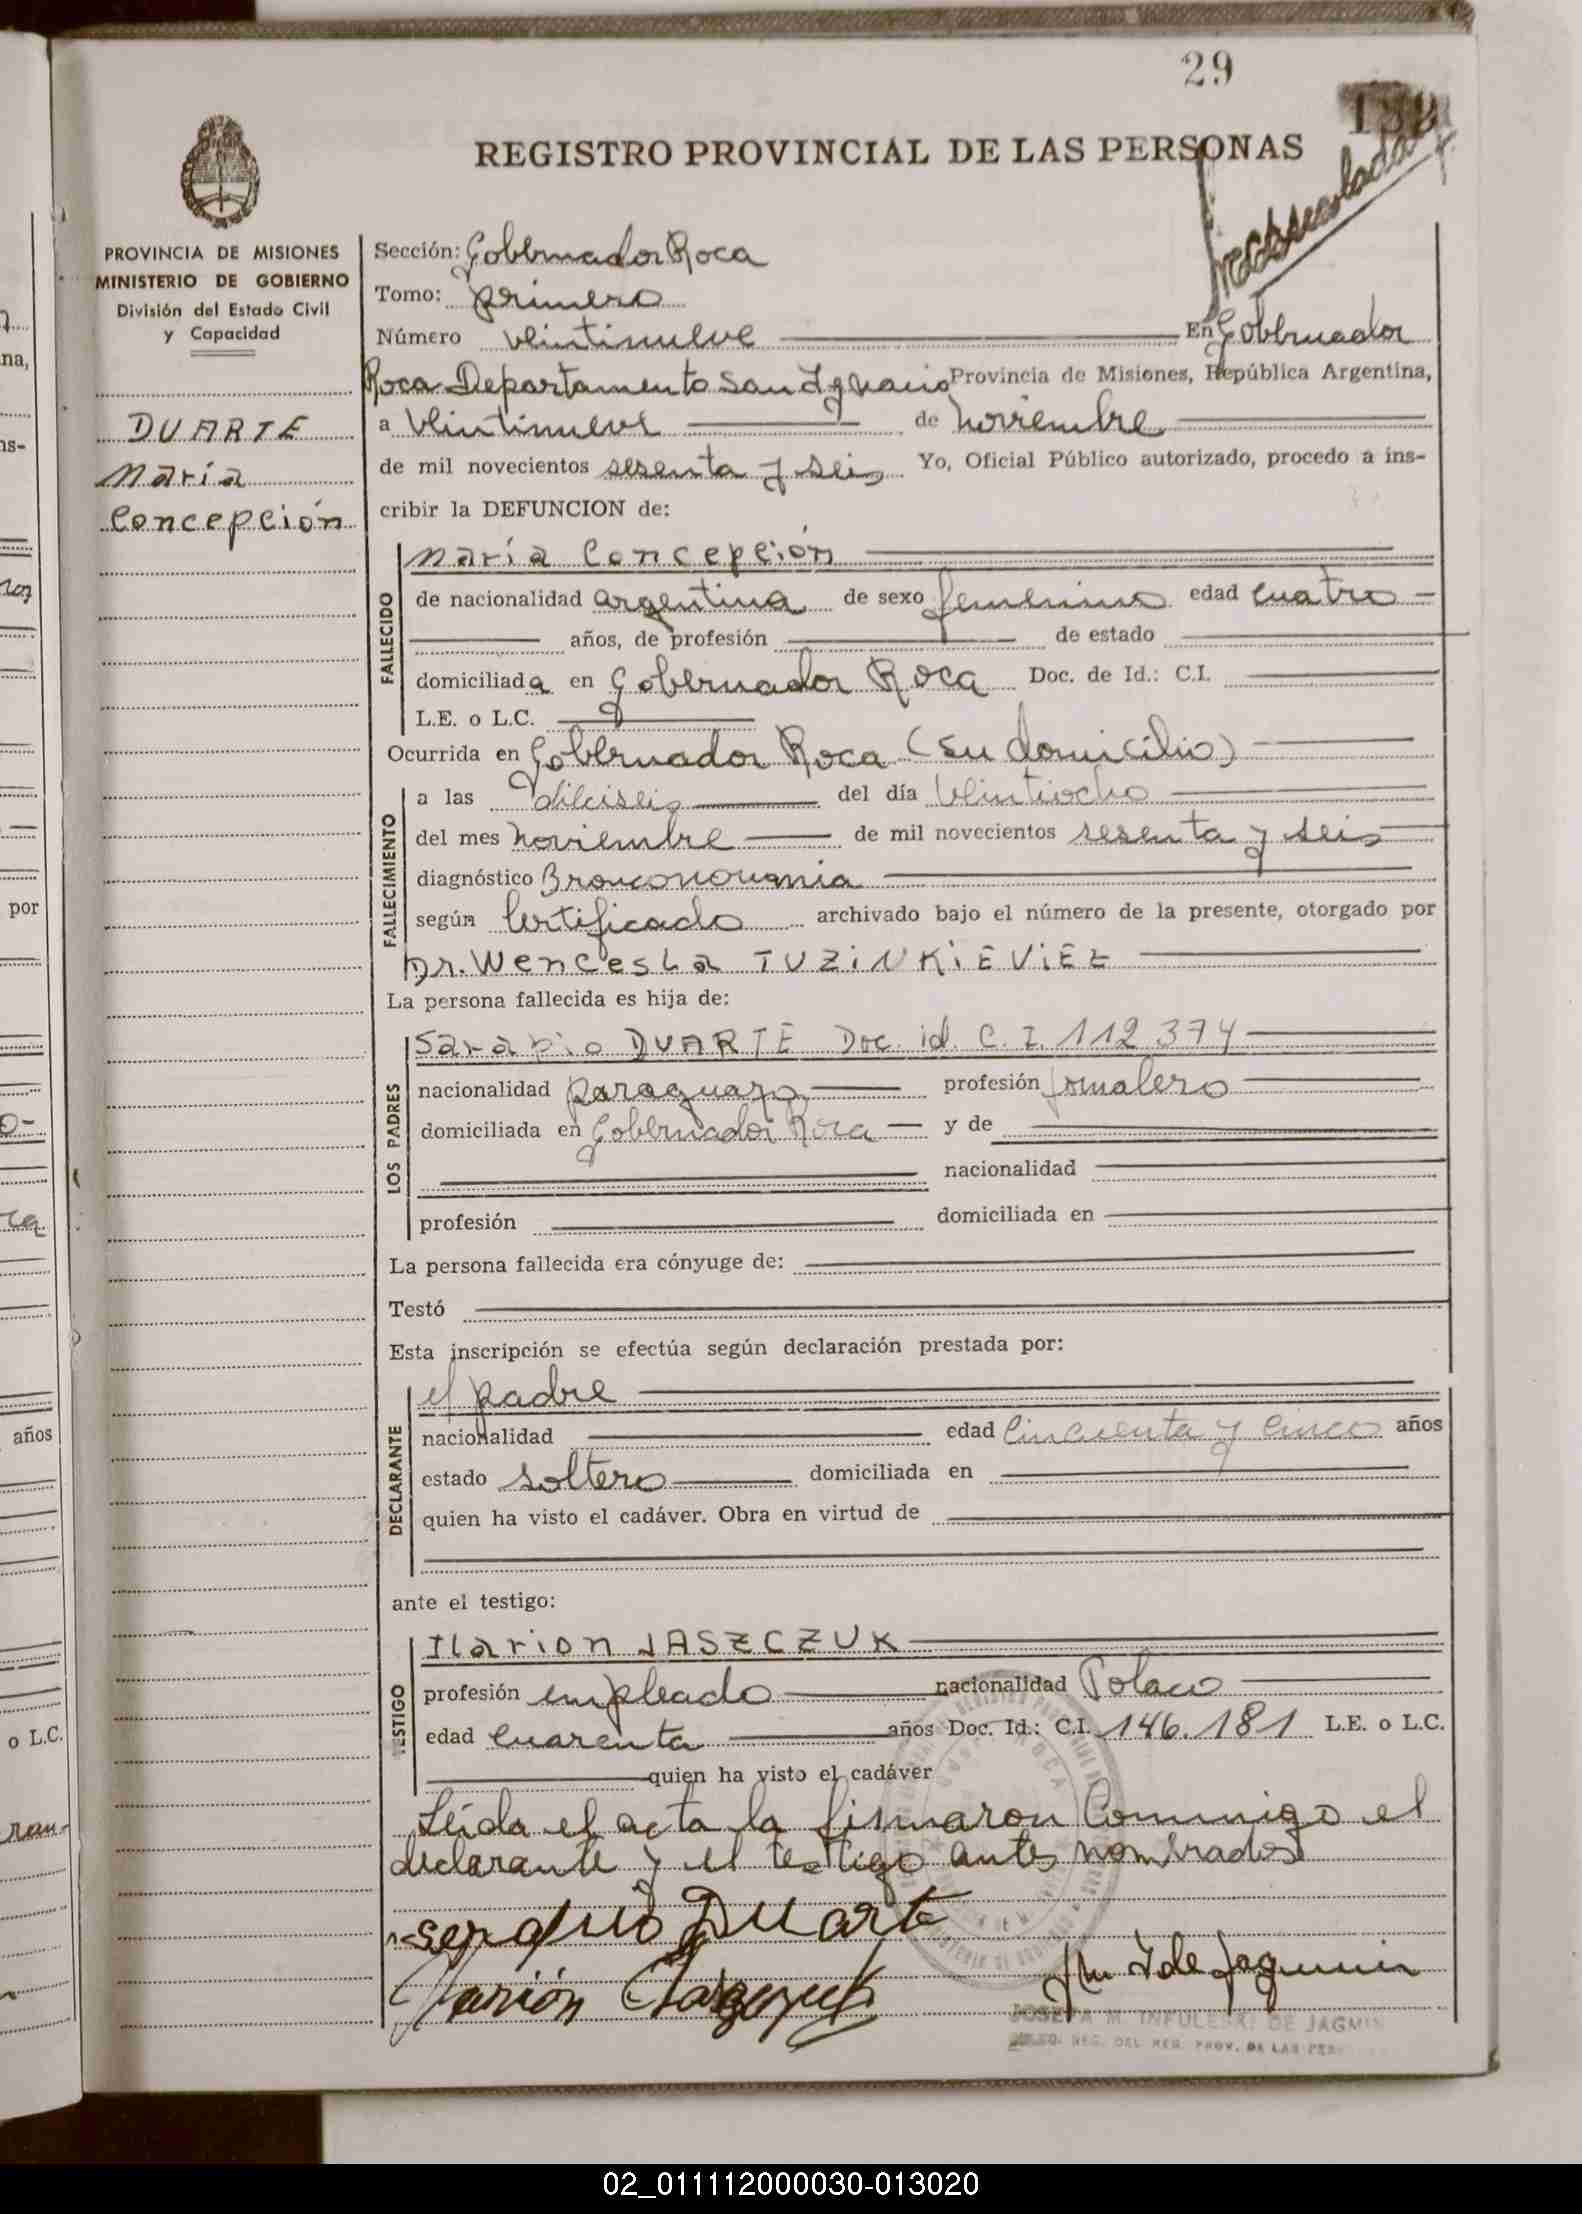 29
REGISTRO PROVINCIAL DE LAS PERSONAS
PROVINCIA DE MISIONES
MINISTERIO DE GOBIERNO
División del Estado Civil
y Capacidad
DUARTE
María
Concepción
Sección: Gobernador Roca
Tomo: primero
Número veintinueve En Gobernador
Roca Departamento San Ignacio Provincia de Misiones, República Argentina,
a veintinueve de noviembre
de mil novecientos sesenta y seis Yo, Oficial Público autorizado, procedo a ins-
cribir la DEFUNCION de:
FALLECIDO
María Concepción
de nacionalidad argentina de sexo femenino edad cuatro
años, de profesión de estado
domiciliada en Gobernador Roca Doc. de Id.: C.I.
L.E. o L.C.
Ocurrida en Gobernador Roca (su domicilio)
FALLECIMIENTO
a las dieciseis del día veintiocho
del mes noviembre de mil novecientos sesenta y seis
diagnóstico Bronconoumnia
según certificado archivado bajo el número de la presente, otorgado por
Dr. Wencesla TUZINKIEVIEZ
La persona fallecida es hija de:
LOS PADRES
Sarapio DUARTE Doc. id. C. I. 112 374
nacionalidad paraguayo profesión jornalero
domiciliada en Gobernador Roca y de
nacionalidad
profesión domiciliada en
La persona fallecida era cónyuge de:
Testó
Esta inscripción se efectúa según declaración prestada por:
DECLARANTE
el padre
nacionalidad edad cincuenta y cinco años
estado soltero domiciliada en
quien ha visto el cadáver. Obra en virtud de
ante el testigo:
TESTIGO
Ilarion JASZCZUK
profesión empleado nacionalidad Polaco
edad cuarenta años Doc. Id.: C.I. 146.181 L.E. o L.C.
quien ha visto el cadáver
Leida el acta la firmaron conmigo el
declarante y el testigo antes nombrados
Duarte
JOSEFA M. INFULESKI DE JAGMIN
na,
ns-
por
años
o L.C.
02_011112000030-013020